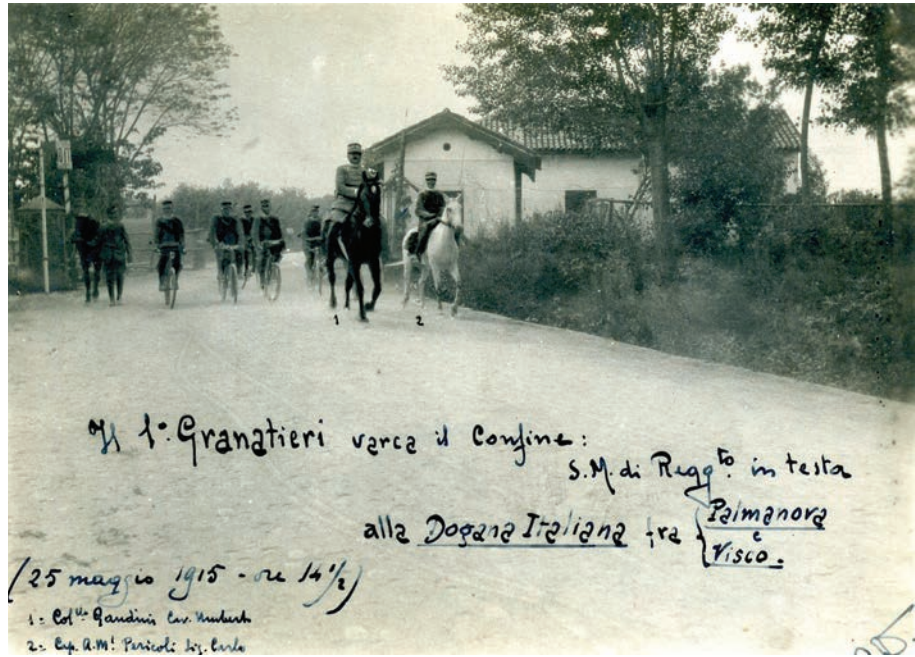 1 2
Il 1º Granatieri varca il Confine:
S.M. di Reggto in testa
alla Dogana Italiana fra { Palmanova
e
Visco.
(25 maggio 1915 - ore 14 1/2)
1= Colllo Gandini Cav. Umberto
2= Cap. A.M. Pericoli Sig. Carlo